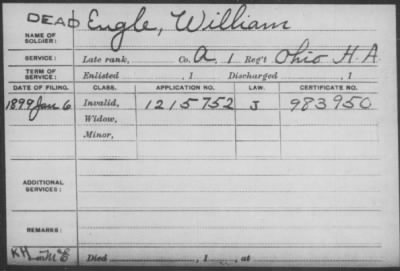 DEAD Engle, William
NAME OF SOLDIER:
SERVICE: Late rank, Co. A, 1 Reg't Ohio H.A.
TERM OF SERVICE: Enlisted , 1 Discharged , 1
DATE OF FILING. CLASS. APPLICATION NO. LAW. CERTIFICATE NO.
1899 Jan 6 Invalid, 1215752 J 983950
Widow,
Minor,
ADDITIONAL SERVICES:
REMARKS:
KH
Died , 1 , at